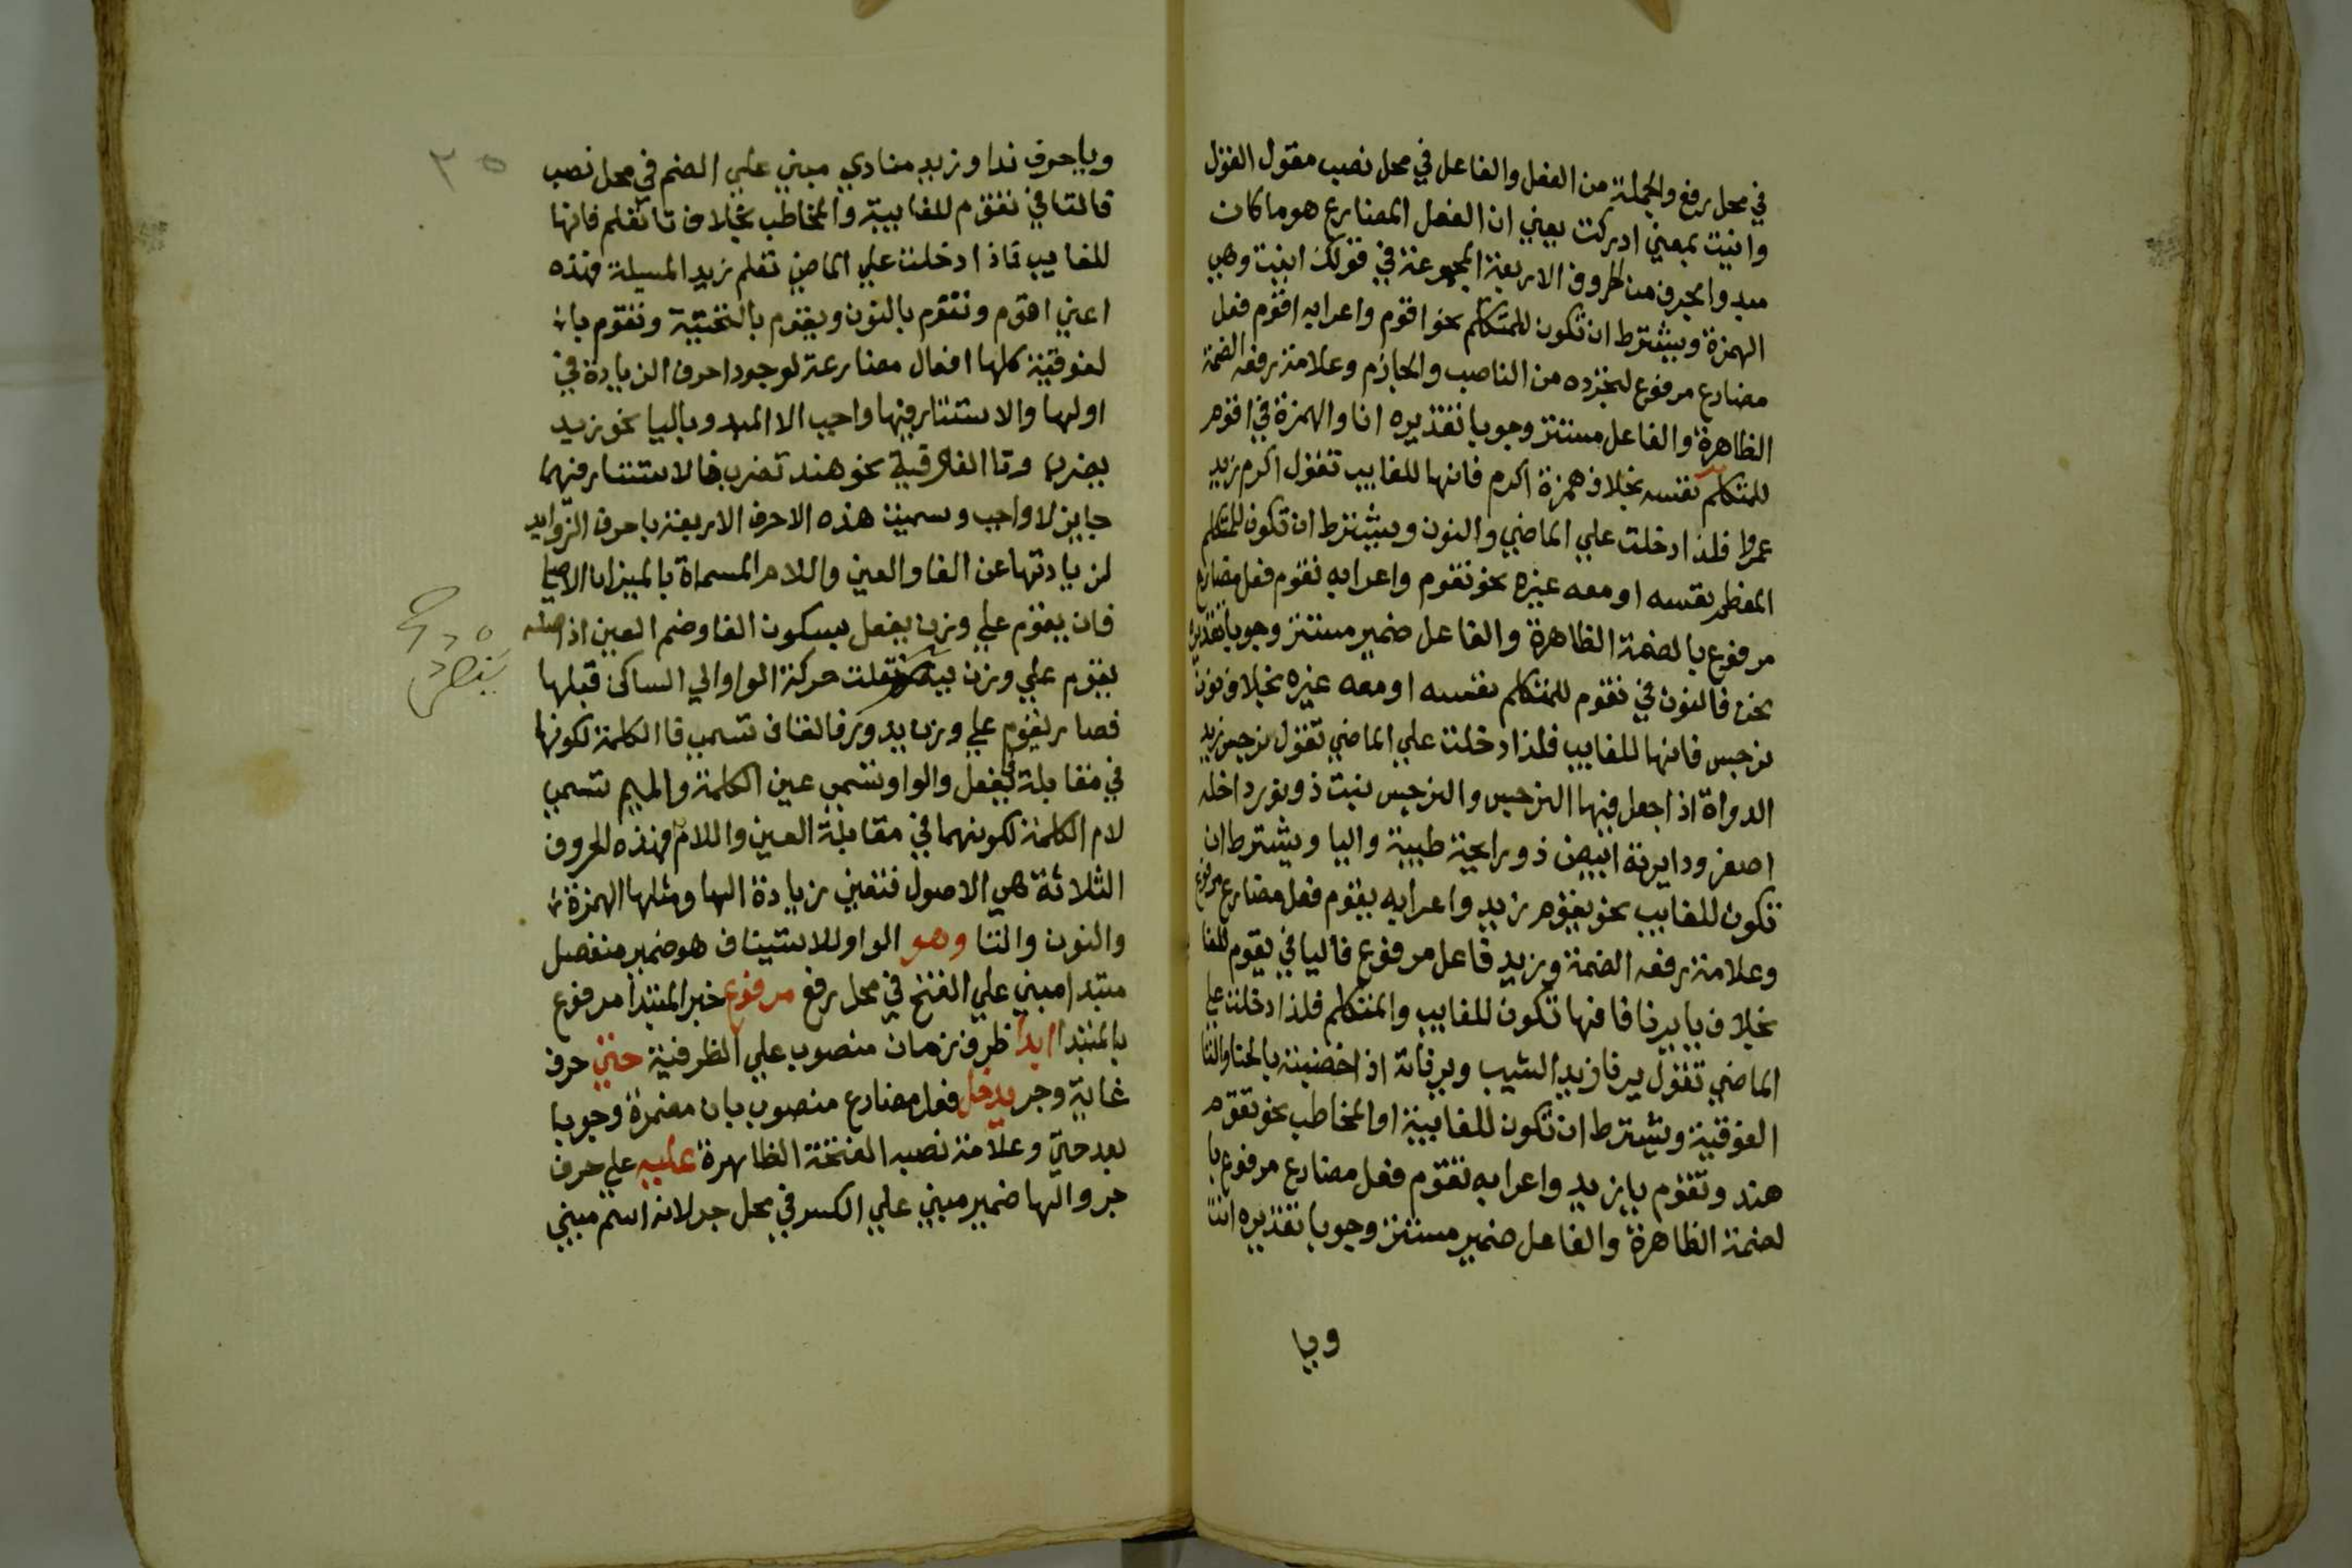 في محل رفع والجملة من الفعل والفاعل في محل نصب مقول القول
وانيت بمعني ادركت يعني ان الفعل المضارع هو ما كان
مبدوا بحرف من الحروف الاربعة المجموعة في قولك انيت وهي
الهمزة ويشترط ان تكون للمتكلم نحو اقوم واعرابه اقوم فعل
مضارع مرفوع لتجرده من الناصب والجازم وعلامة رفعه الضمة
الظاهرة والفاعل مستتر وجوبا تقديره انا والهمزة في اقوم
للمتكلم نفسه بخلاف همزة اكرم فانها للغايب تقول اكرم زيد
عمروا فلذا دخلت علي الماضي والنون ويشترط ان تكون للمتكلم
المعظم نفسه او معه غيره نحو نقوم واعرابه نقوم فعل مضارع
مرفوع بالضمة الظاهرة والفاعل ضمير مستتر وجوبا تقديره
نحن فالنون في نقوم للمتكلم نفسه او معه غيره بخلاف نون
نرجس فانها للغايب فلذا دخلت علي الماضي تقول نرجس زيد
الدواة اذا جعل فيها النرجس والنرجس نبت ذو نور داخله
اصفر ودايرته ابيض ذو رايحة طيبة واليا ويشترط ان
تكون للغايب نحو يقوم زيد واعرابه يقوم فعل مضارع مرفوع
وعلامة رفعه الضمة وزيد فاعل مرفوع فاليا في يقوم للغا
بخلاف يا يرنا فانها تكون للغايب والمتكلم فلذا دخلت علي
الماضي تقول يرنا زيد الشيب ويرناته اذا خضبته بالحنا والتا
الفوقية ويشترط ان تكون للغايبة او المخاطب نحو تقوم
هند وتقوم يا زيد واعرابه تقوم فعل مضارع مرفوع با
لضمة الظاهرة والفاعل ضمير مستتر وجوبا تقديره انت
ويا
٣٥
ويا حرف ندا وزيد منادي مبني علي الضم في محل نصب
فالتا في تقوم للغايبة والمخاطب بخلاف تا تعلم فانها
للغايب فلذا دخلت علي الماضي تعلم زيد المسيلة فهذه
اعني اقوم ونقوم بالنون ويقوم بالتحتية وتقوم با
لفوقية كلها افعال مضارعة لوجود احرف الزيادة في
اولها والاستتار فيها واجب الا المبدو باليا نحو زيد
يضرب وتا الفوقية نحو هند تضرب فالاستتار فيهما
جايز لا واجب وسميت هذه الاحرف الاربعة باحرف الزوايد
لزيادتها عن الفا والعين واللام المسماة بالميزان الاصلي
فان يقوم علي وزن يفعل بسكون الفا وضم العين اذ اصله
يقوم علي وزن ينصر نقلت حركة الواو الي الساكن قبلها
فصار يقوم علي وزن يدور فالقاف تسمي فا الكلمة لكونها
في مقابلة في يفعل والواو تسمي عين الكلمة والميم تسمي
لام الكلمة لكونهما في مقابلة العين واللام فهذه الحروف
الثلاثة هي الاصول فتعين زيادة اليا ومثلها الهمزة
والنون والتا وهو الواو للاستيناف هو ضمير منفصل
مبتدا مبني علي الفتح في محل رفع مرفوع خبر المبتدا مرفوع
بالمبتدا ابدا ظرف زمان منصوب علي الظرفية حتي حرف
غاية وجر يدخل فعل مضارع منصوب بان مضمرة وجوبا
بعد حتي وعلامة نصبه الفتحة الظاهرة عليه علي حرف
جر والها ضمير مبني علي الكسر في محل جر لانه اسم مبني